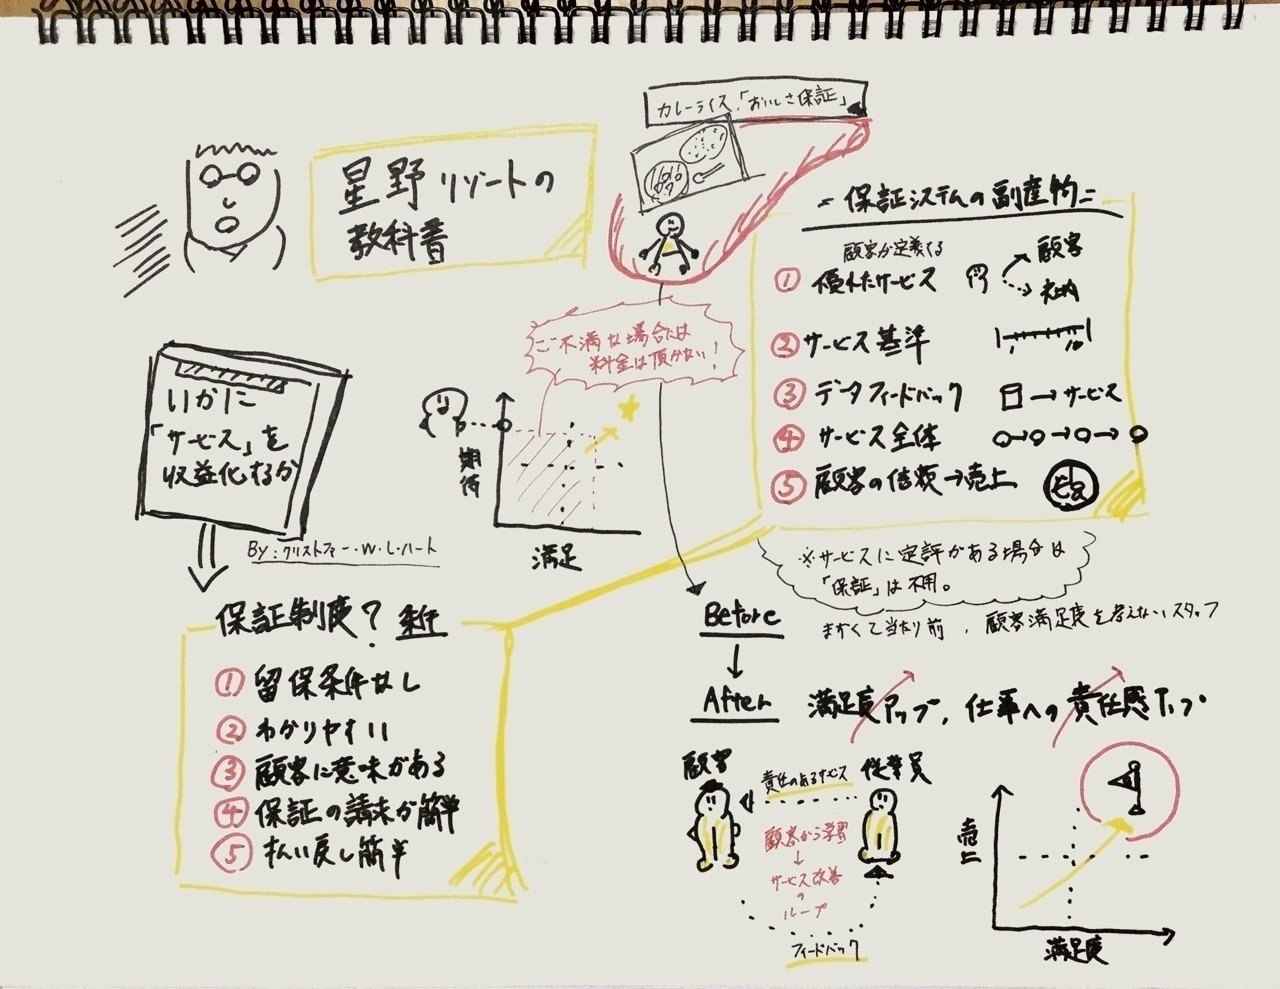 カレーライス「おいしさ保証」
星野リゾートの
教科書
ご不満な場合には
料金は頂かない!
いかに
「サービス」を
収益化するか
By:クリストファー・W・L・ハート
期待
満足
保証制度?
① 留保条件なし
② わかりやすい
③ 顧客に意味がある
④ 保証の請求が簡単
⑤ 払い戻し簡単
=保証システムの副産物=
顧客が定義する
① 優れたサービス
顧客
社内
② サービス基準
1 10
③ データフィードバック
→サービス
④ サービス全体
⑤ 顧客の信頼→売上
※サービスに定評がある場合は
「保証」は不用。
Before
まずくて当たり前、顧客満足度を考えないスタッフ
After
満足度アップ、仕事への責任感アップ
顧客
責任のあるサービス
従業員
顧客から学習
↓
サービス改善
の
ループ
フィードバック
売上
満足度